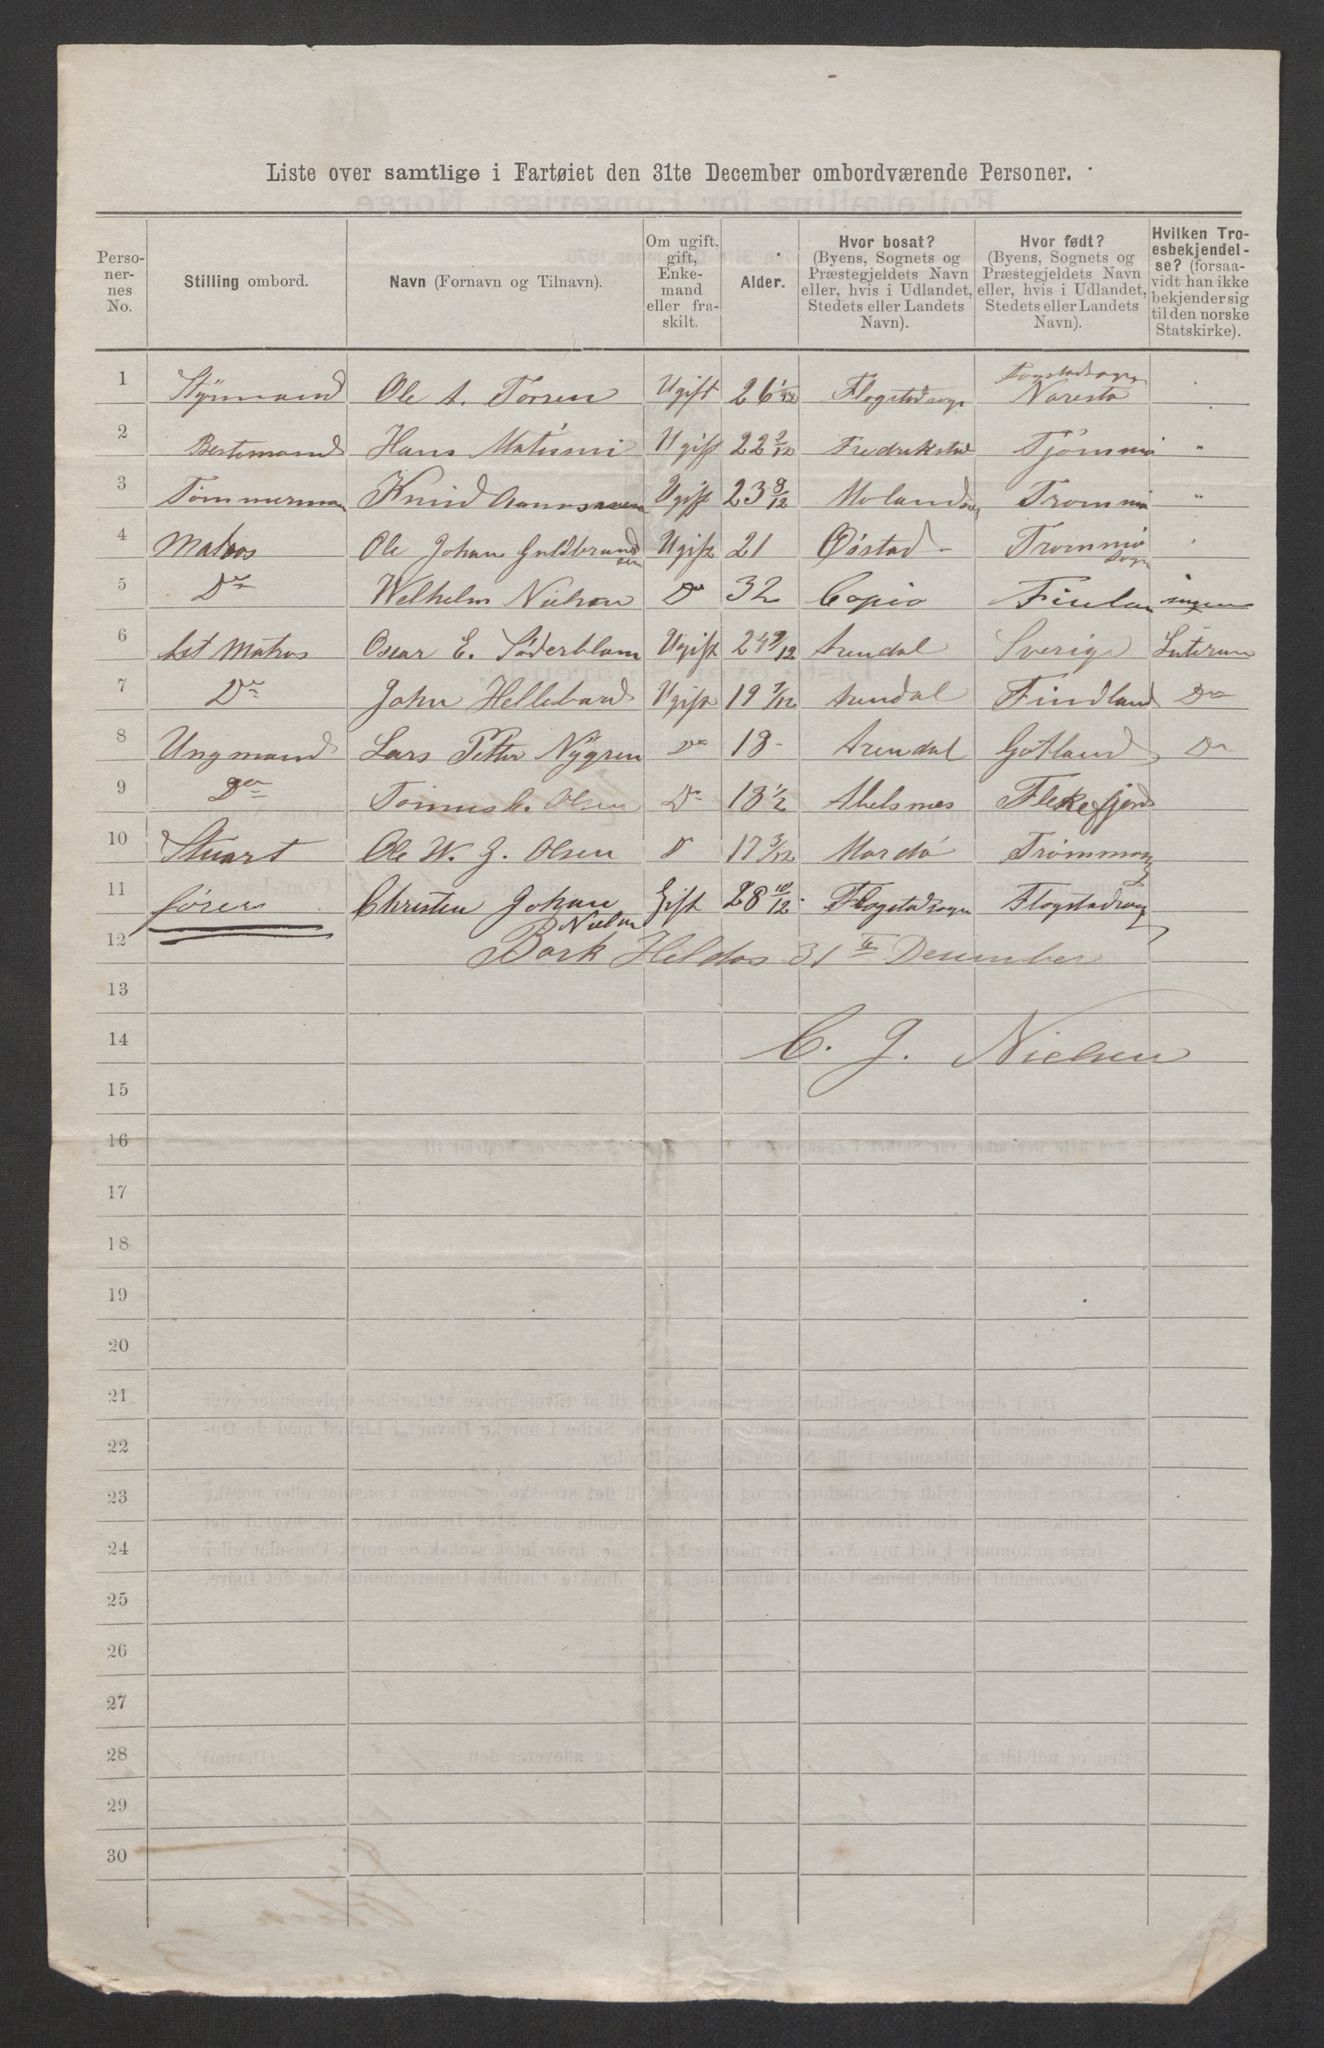 Liste over samtlige i Fartøiet den 31te December ombordværende Personer.
Personernes No. | Stilling ombord. | Navn (Fornavn og Tilnavn). | Om ugift, gift, Enkemand eller fraskilt. | Alder. | Hvor bosat? (Byens, Sognets og Præstegjeldets Navn eller, hvis i Udlandet, Stedets eller Landets Navn). | Hvor født? (Byens, Sognets og Præstegjeldets Navn eller, hvis i Udlandet, Stedets eller Landets Navn). | Hvilken Troesbekjendelse? (forsaavidt han ikke bekjender sig til den norske Statskirke).
1 Styrmand Ole A. Torsen Ugift 26 1/12 Flogstadsogn Naresto
2 Bestemand Hans Ugift 22 2/12 Fredrikstad Tjømmø "
3 Tømmerman Knud Ugift 23 8/12 Molandsogn Trommø "
4 Matros Ole Johan Guldbrandsen Ugift 21 Øistad Trommø Sogn
5 Do Welhelm Nielsen Do 32 Copio Finlan ingen
6 Let Matros Oscar E. Söderblom Ugift 24 9/12 Arendal Sverige Luterun
7 Do John Hellebard Ugift 19 7/12 Arendal Findland Do
8 Ungmand Lars Petter Nÿgren Do 18 Arendal Gotland Do
9 Do Olsen Do 18 1/2 Flekefjord
10 Stuart Ole W. J. Olsen D 17 3/12 Mardö Trommøy
11 fører Christen Johan Nielsen Gift 28 10/12 Flogstadsogn Flogstadsogn
12 Bark Heldos 31te December
13
14 C. J. Nielsen
15
16
17
18
19
20
21
22
23
24
25
26
27
28
29
30